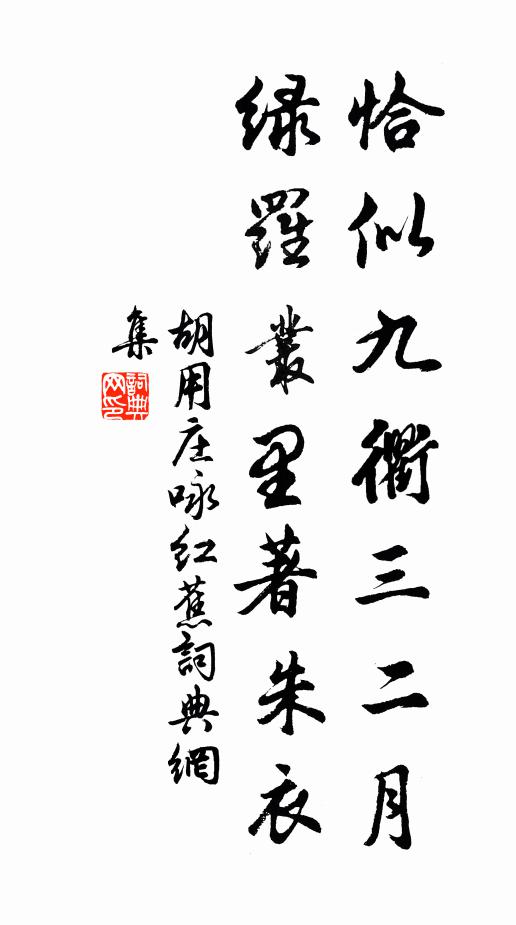 恰似九衢三二月
緑羅叢里著朱衣
胡用庄咏红蕉詞典網
集
詞典
网印